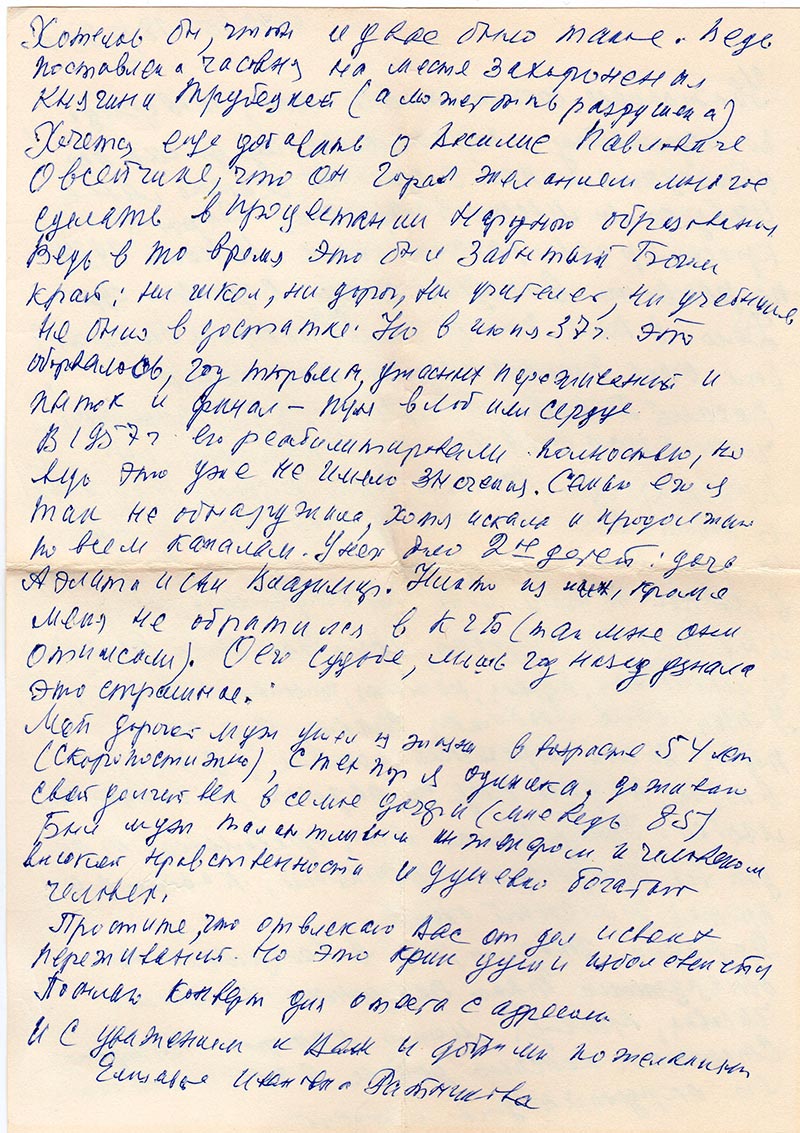 Хотелось бы, чтоб и у вас было такое. Ведь
поставлена часовня на месте захоронения
Княгини Трубецкой (а может быть разрушена)
Хочется еще добавить о Василие Павловиче
Овсейчике, что он горел желанием многое
сделать в процветании Народного образования
Ведь в то время это был Забытый Богом
край: ни школ, ни дорог, ни учителей, ни учебников
не было в достатке. Но в июля 37 г. это
оборвалось, год тюрьмы, ужасных переживаний и
пыток и финал – пуля в лоб или сердце
В 1957 г. его реабилитировали полностью, но
ведь это уже не имело значения. Семью его я
так не обнаружила, хотя искала и продолжаю
по всем каналам. У них было 2е детей: дочь
Аэлита и сын Владимир. Никто из них, кроме
меня не обратился в КГБ (так мне они
отписали). О его судьбе, лишь год назад узнала
это страшное.
Мой дорогой муж ушел из жизни в возрасте 54 лет
(скоропостижно), с тех пор я одинока, доживаю
свой долгий век в семье дочери (мне ведь 85)
Был муж талантливым инженером и человеком
высокой нравственности и душевно богатый
человек.
Простите, что отвлекаю Вас от дел и своих
переживаний. Но это крик души изболевшейся
Посылаю конверт для ответа с адресом
И с уважением к Вам и добрыми пожеланиями
Ивановна Ратникова